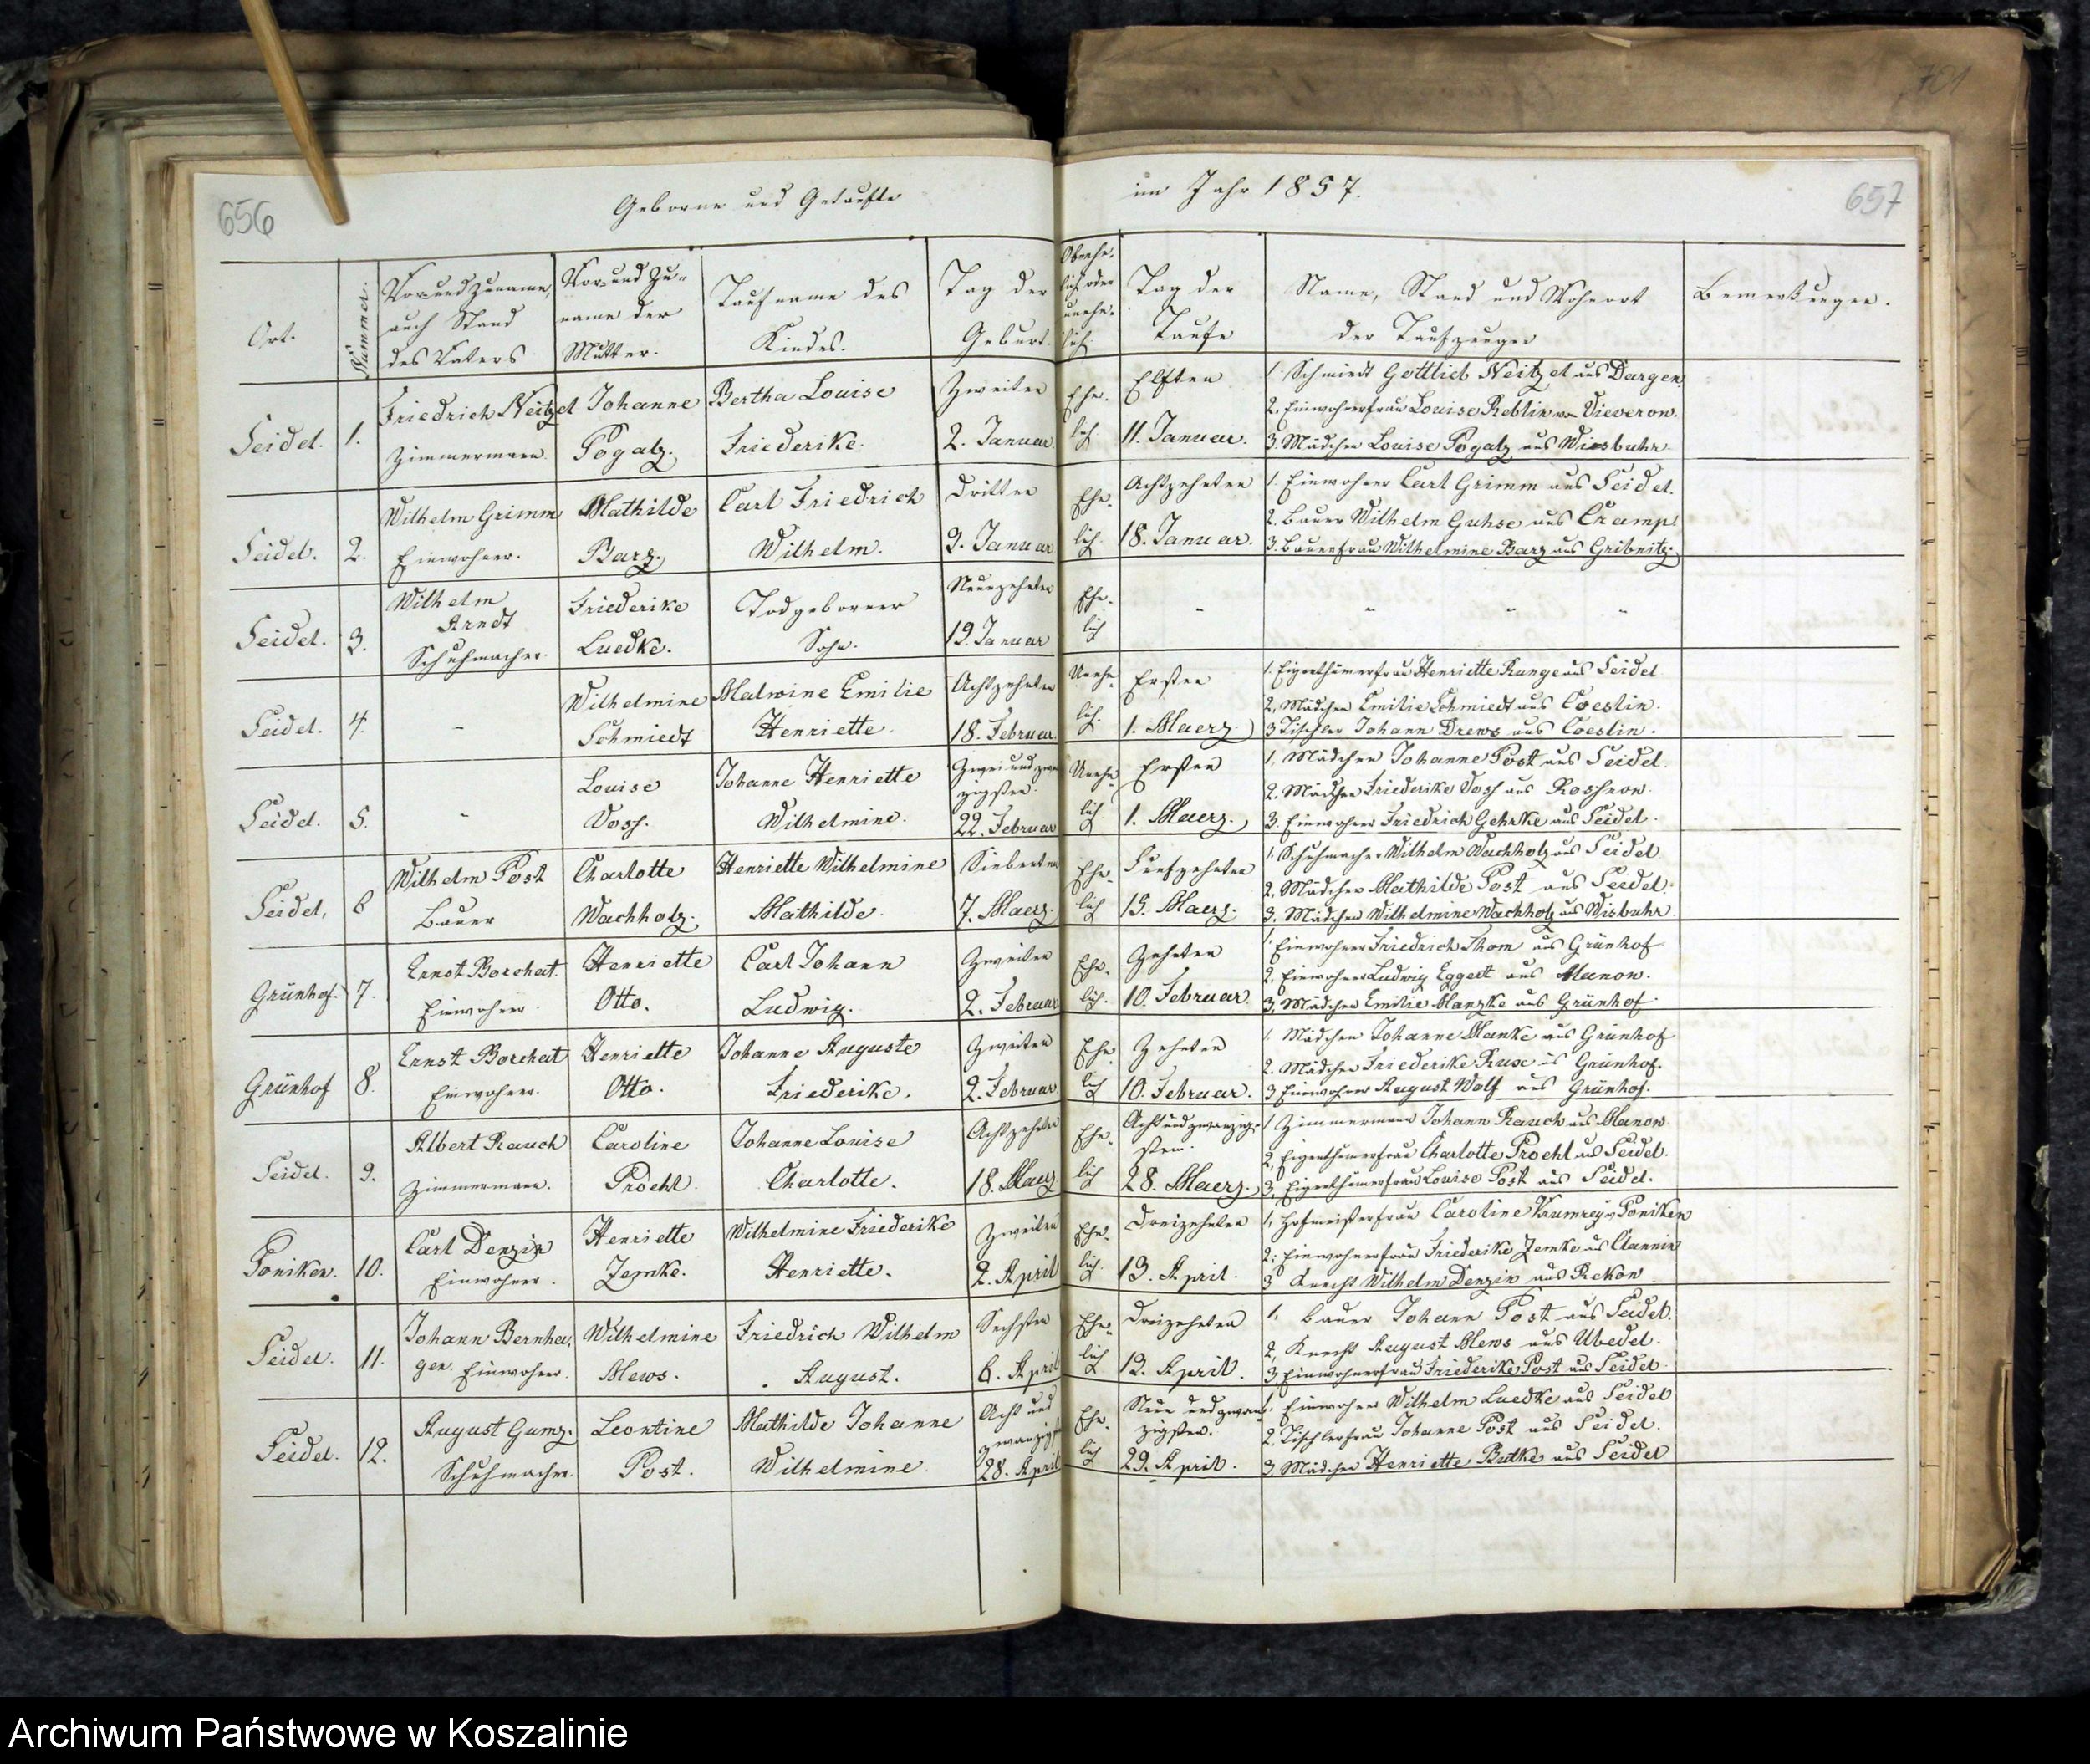 656
Geborne und Getaufte
im Jahr 1857.
657
701
Ort.
Nummer.
Vor und Zuname,
auch Stand
des Vaters
Vor und Zu=
name der
Mutter.
Taufname des
Kindes.
Tag der
Geburt.
unehe-
lich.
Tag der
Taufe
Name, Stand und Wohnort
der Taufzeugen
Bemerkungen.
Seidel. 1.
Friedrich Neitzel
Zimmermann.
Johanne
Pogatz.
Bertha Louise
Friederike.
Zweiten
2. Januar.
Ehe-
lich.
Elften
11. Januar.
1. Schmiedt Gottlieb Neitzel aus Dargen
2. Einwohnerfrau Louise Reblin von Vieverow.
3. Mädchen Louise Pogatz aus Wiesbuhr.
Seidel. 2.
Wilhelm Grimm
Einwohner.
Mathilde
Barz.
Carl Friedrich
Wilhelm.
Dritten
3. Januar
Ehe-
lich.
Achtzehnten
18. Januar.
1. Einwohner Carl Grimm aus Seidel.
2. Bauer Wilhelm Guhse aus Cramp
3. Bauernfrau Wilhelmine Barz aus Gribnitz.
Seidel. 3.
Wilhelm
Arndt
Schuhmacher.
Friederike
Luedke.
Todgeborner
Sohn.
Neunzehnten
19. Januar
Ehe-
lich
Seidel. 4.
-
Wilhelmine
Schmiedt
Malwine Emilie
Henriette.
Achtzehnten
18. Februar.
Unehe-
lich.
Ersten
1. Maerz.
1. Eigenthümerfrau Henriette Runge aus Seidel
2. Mädchen Emilie Schmiedt aus Coeslin.
3 Tischler Johann Drews aus Coeslin.
Seidel. 5.
-
Louise
Voss.
Johanne Henriette
Wilhelmine.
Zwei und zwan
zigsten.
22. Februar
Unehe-
lich
Ersten
1. Maerz.
1. Mädchen Johanne Post aus Seidel.
2. Mädchen Friederike Voss aus Rossnow.
3. Einwohner Friedrich Gehrke aus Seidel.
Seidel, 6
Wilhelm Post
Bauer
Charlotte
Wachholz.
Henriette Wilhelmine
Mathilde.
Siebenten
7. Maerz.
Ehe-
lich
Funfzehnten
15. Maerz.
1. Schuhmacher Wilhelm Wachholz aus Seidel
2. Mädchen Mathilde Post aus Seidel.
3. Mädchen Wilhelmine Wachholz aus Wisbuhr.
Grünhof. 7.
Ernst Borchat.
Einwohner
Henriette
Otto.
Carl Johann
Ludwig.
Zweiten
2. Februar
Ehe-
lich.
Zehnten
10. Februar.
1. Einwohner Friedrich Thom aus Grünhof
2. Einwohner Ludwig Eggert aus Manow.
3. Mädchen Emilie Manzke aus Grünhof.
Grünhof 8.
Ernst Borchat
Einwohner.
Henriette
Otto.
Johanne Auguste
Friederike.
Zweiten
2. Februar
Ehe-
lich
Zehnten
10. Februar.
1. Mädchen Johanne Manke aus Grünhof
2. Mädchen Friederike Ruse aus Grünhof.
3 Einwohner August Wolf aus Grünhof.
Seidel. 9.
Albert Rauch
Zimmermann.
Caroline
Proehl.
Johanne Louise
Charlotte.
Achtzehnten
18. Maerz
Ehe-
lich
Acht und zwanzig-
sten.
28. Maerz.
1 Zimmermann Johann Rauch aus Manow
2. Eigenthümerfrau Charlotte Proehl aus Seidel.
3. Eigenthümerfrau Louise Post aus Seidel.
Poniken. 10.
Carl Denzin
Einwohner.
Henriette
Zemke.
Wilhelmine Friederike
Henriette.
Zweiten
2. April
Ehe-
lich.
Dreizehnten
13. April.
1. Hofmeisterfrau Caroline Krumrey v Poniken
2. Einwohnerfrau Friederike Zemke aus Clannin
3 Knecht Wilhelm Denzin aus Rekow
Seidel. 11.
Johann Bernha-
gen. Einwohner.
Wilhelmine
Mews.
Friedrich Wilhelm
August.
Sechsten
6. April
Ehe-
lich
Dreizehnten
13. April.
1. Bauer Johann Post aus Seidel.
2. Knecht August Mews aus Ubedel.
3. Einwohnerfrau Friederike Post aus Seidel.
Seidel. 12.
August Gumz.
Schuhmacher.
Leontine
Post.
Mathilde Johanne
Wilhelmine.
Acht und
zwanzigsten
28. April
Ehe-
lich
Neun und zwan-
zigsten.
29. April.
1. Einwohner Wilhelm Luedke aus Seidel
2. Tischlerfrau Johanne Post aus Seidel.
3. Mädchen Henriette Butke aus Seidel
Archiwum Państwowe w Koszalinie